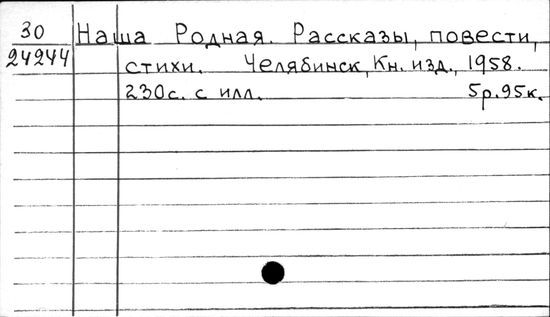 30 Наша Родная. Рассказы, повести,
24244 стихи. Челябинск, Кн. изд., 1958.
230с. с илл. 5р.95к.